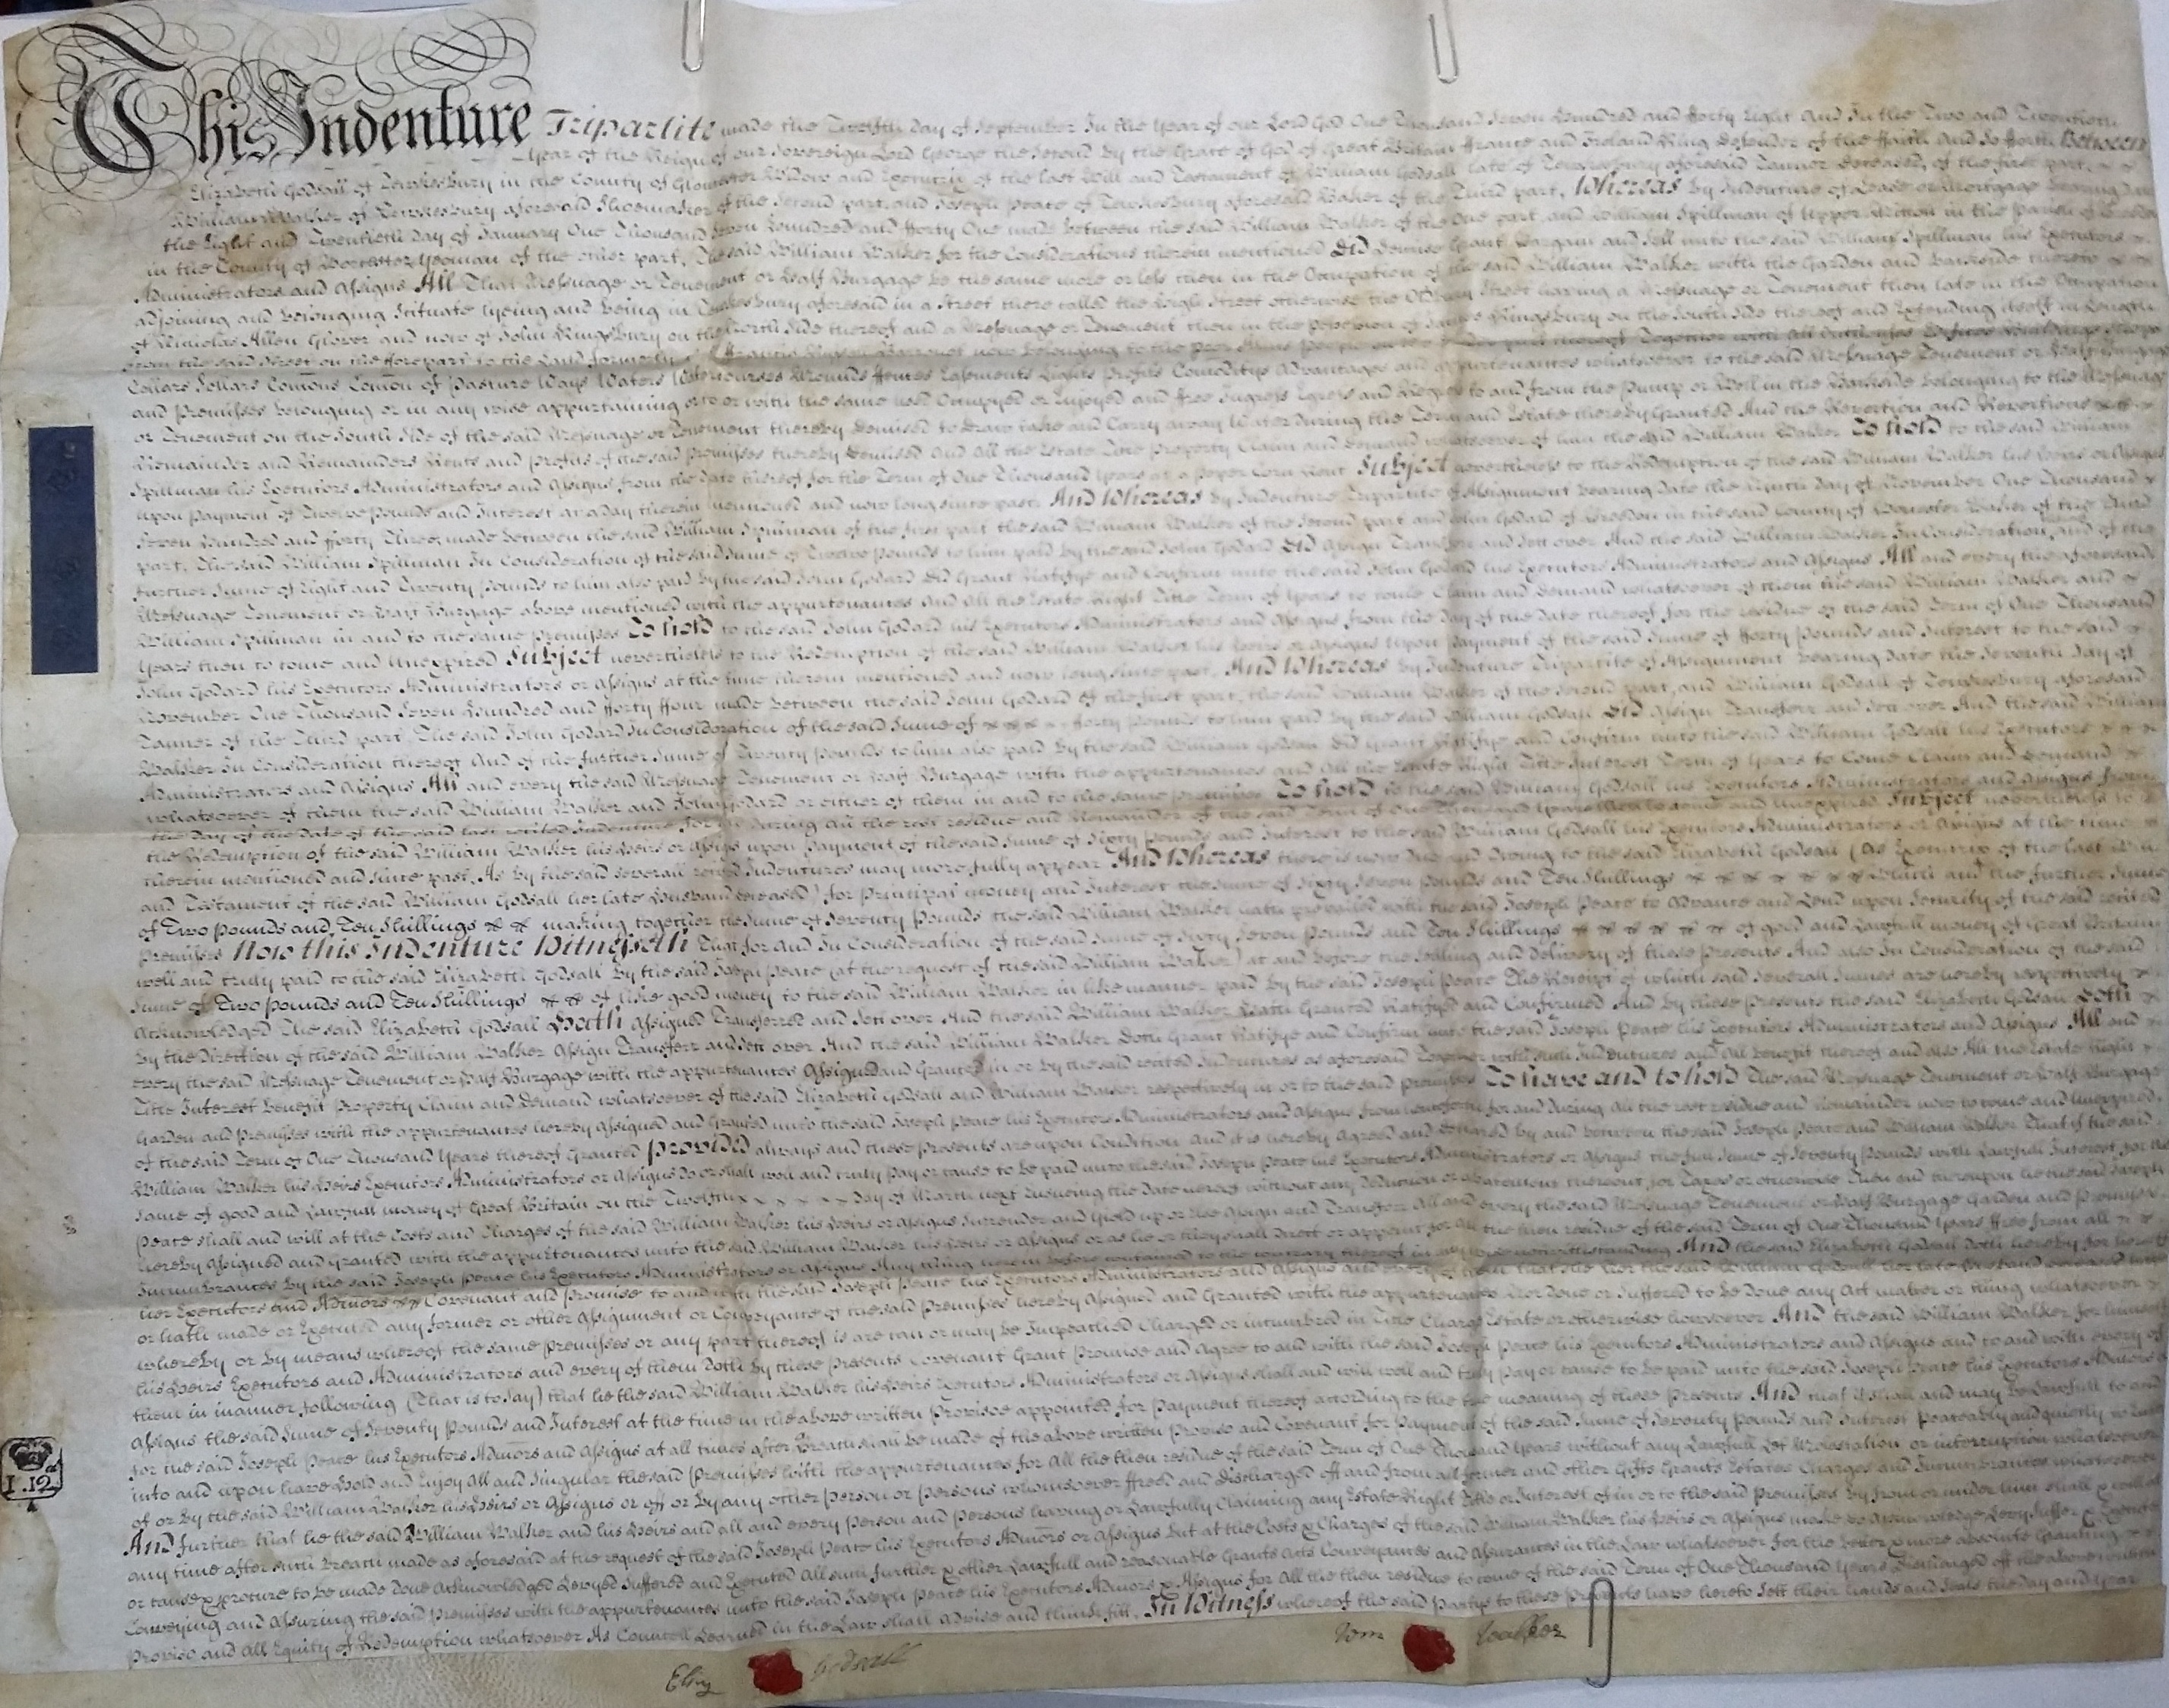 This Indenture Tripartite made the Twelfth day of September In the Year of our Lord God One Thousand Seven Hundred and fforty Eight And In the Two and Twentieth
Year of the Reign of our Sovereign Lord George the Second by the Grace of God of Great Britain ffrance and Ireland King Defender of the ffaith And so fforth Between
Elizabeth Godsall of Tewkesbury in the County of Gloucester Widow and Executrix of the last Will and Testament of William Godsall late of Tewkesbury aforesaid Tanner deceased, of the first part,
William Walker of Tewkesbury aforesaid Shoemaker of the Second part, and Joseph Peace of Tewkesbury aforesaid Baker of the Third part, Whereas by Indenture of Lease or Mortgage bearing Date
the Eight and Twentieth day of January One Thousand Seven Hundred and fforty One made Between the said William Walker of the One part, and William Spillman of Upper Mitton in the parish of Bredon
in the County of Worcester Yeoman of the other part, The said William Walker for the Considerations therein mentioned Did Demise Grant Bargain and Sell unto the said William Spillman his Executors
Administrators and Assigns All That Messuage or Tenement or Half Burgage be the same more or less then in the Occupation of the said William Walker with the Garden and Backside thereto
adjoining and belonging Scituate lyeing and being in Tewkesbury aforesaid in a Street there called the High Street otherwise the Oldbury Street having a Messuage or Tenement then late in the Occupation
of Nicholas Allen Glover and now of John Kingsbury on the North Side thereof and a Messuage or Tenement then in the Possession of James Kingsbury on the South Side thereof and Extending itself in Length
from the said Street on the fforepart to the Land formerly of ffrancis now belonging to the part thereof Together with All Outhouses Edifices Buildings Shops
Cellars Sollars Comons Comon of Pasture Ways Waters Watercourses Mounds ffences Easements Lights Profits Comoditys Advantages and Appurtenances whatsoever to the said Messuage Tenement or Half Burgage
and Premisses belonging or in any wise appurtaining or to or with the same used Occupyed or Enjoyed and ffree Ingress Egress and Regress to and from the Pump or Well in the Backside belonging to the Messuage
or Tenement on the South Side of the said Messuage or Tenement thereby Demised to draw take and Carry away Water during the Term and Estate thereby Granted And the Revertion and Revertions
Remainder and Remainders Rents and profits of the said Premisses thereby Demised And All the Estate Title Property Claim and Demand whatsoever of him the said William Walker To hold to the said William
Spillman his Executors Administrators and Assigns from the Date thereof for the Term of One Thousand Years at a Peper Corn Rent Subject nevertheless to the Redemption of the said William Walker his Heirs or Assigns
upon Payment of Twelve Pounds and Interest at a day therein mentioned and now long since past. And Whereas by Indenture Tripartite of Assignment bearing Date the Ninth Day of November One Thousand
Seven Hundred and fforty Three, made Between the said William Spillman of the first part the said William Walker of the Second part and John Godard of Bredon in the said County of Worcester Baker of the Third
part, The said William Spillman In Consideration of the said Sume of Twelve Pounds to him paid by the said John Godard Did Assign Transferr and Sett over And the said William Walker In Consideration and of the
further Sume of Eight and Twenty Pounds to him also paid by the said John Godard Did Grant Ratifye and Confirm unto the said John Godard his Executors Administrators and Assigns All and every the aforesaid
Messuage Tenement or Half Burgage above mentioned with the appurtenances And All the Estate Right Title Term of Years to come Claim and Demand whatsoever of them the said William Walker and
William Spillman in and to the same Premisses To hold to the said John Godard his Executors Administrators and Assigns from the Day of the Date thereof for the residue of the said Term of One Thousand
Years then to come and Unexpired Subject nevertheless to the Redemption of the said William Walker his Heirs or Assigns Upon Payment of the said Sume of fforty Pounds and Interest to the said
John Godard his Executors Administrators or Assigns at the time therein mentioned and now long since past. And Whereas by Indenture Tripartite of Assignment bearing Date the Seventh Day of
November One Thousand Seven Hundred and fforty ffour made Between the said John Godard of the first part, the said William Walker of the Second part, and William Godsall of Tewkesbury aforesaid
Tanner of the Third part, The said John Godard In Consideration of the said Sume of fforty Pounds to him paid by the said William Godsall Did Assign Transferr and Sett over And the said William
Walker In Consideration thereof And of the further Sume of Twenty Pounds to him also paid by the said William Godsall Did Grant Ratifye and Confirm unto the said William Godsall his Executors
Administrators and Assigns All and every the said Messuage Tenement or Half Burgage with the appurtenances and All the Estate Right Title Interest Term of Years to Come Claim and Demand
whatsoever of them the said William Walker and John Godard or either of them in and to the same Premisses To hold to the said William Godsall his Executors Administrators and Assigns from
the Day of the Date of the said last recited Indenture for and during all the rest residue and Remainder of the said Term of One Thousand Years then to come and unexpired Subject nevertheless to
the Redemption of the said William Walker his Heirs or Assigns upon Payment of the said Sume of Sixty Pounds and Interest to the said William Godsall his Executors Administrators or Assigns at the time
therein mentioned and since past, As by the said severall recited Indentures may more fully appear And Whereas there is now due and Owing to the said Elizabeth Godsall (As Executrix of the last Will
and Testament of the said William Godsall her late Husband deceased) for Principal money and Interest the Sume of Sixty Seven Pounds and Ten Shillings Which and the further Sume
of Two Pounds and Ten Shillings making together the Sume of Seventy Pounds the said William Walker hath prevailed with the said Joseph Peace to Advance and Lend upon Security of the said recited
Premisses Now this Indenture Witnesseth That for and In Consideration of the said Sume of Sixty Seven Pounds and Ten Shillings of good and Lawfull money of Great Britain
well and truly paid to the said Elizabeth Godsall by the said Joseph Peace (at the request of the said William Walker) at and before the Sealing and Delivery of these Presents And also In Consideration of the said
Sume of Two Pounds and Ten Shillings of like good money to the said William Walker in like manner paid by the said Joseph Peace The Receipt of which said Severall Sumes are hereby respectively
Acknowledged The said Elizabeth Godsall Hath Assigned Transferred and Sett over And the said William Walker Hath Granted Ratifyed and Confirmed And by these Presents the said Elizabeth Godsall Doth
By the Direction of the said William Walker Assign Transferr and Sett over And the said William Walker Doth Grant Ratifye and Confirm unto the said Joseph Peace his Executors Administrators and Assigns All and
every the said Messuage Tenement or Half Burgage with the appurtenances Assigned and Granted in or by the said recited Indentures as aforesaid Together with such Indentures and All benefit thereof and also All the Estate Right
Title Interest Benefit Property Claim and Demand whatsoever of the said Elizabeth Godsall and William Walker respectively in or to the said Premisses To have and to hold The said Messuage Tenement or Half Burgage
Garden and Premisses with the appurtenances hereby Assigned and Granted unto the said Joseph Peace his Executors Administrators and Assigns from henceforth for and During All the rest residue and Remainder now to come and Unexpired
of the said Term of One Thousand Years thereof Granted Provided always and these Presents are upon Condition And it is hereby Agreed and declared by and between the said Joseph Peace and William Walker That if the said
William Walker his Heirs Executors Administrators or Assigns Do or shall well and truly Pay or cause to be paid unto the said Joseph Peace his Executors Administrators or Assigns the full Sume of Seventy Pounds with Lawfull Interest for the
same of good and Lawfull money of Great Britain on the Twelfth Day of March next Ensueing the Date hereof without any Deduction or abatement thereout for Taxes or otherwise Then and thereupon he the said Joseph
Peace shall and will at the Costs and Charges of the said William Walker his Heirs or Assigns Surrender and Yield up or else Assign and Transferr All and every the said Messuage Tenement or Half Burgage Garden and Premisses
hereby Assigned and Granted with the appurtenances unto the said William Walker his Heirs or Assigns or as he or they shall Direct or appoint for All the then residue of the said Term of One Thousand Years ffree from all
Incumbrances by the said Joseph Peace his Executors Administrators or Assigns Any thing herein before contained to the contrary thereof in any wise notwithstanding And the said Elizabeth Godsall Doth hereby for herself
her Executors and Admors Covenant and Promise to and with the said Joseph Peace his Executors Administrators and Assigns and every of them that she nor the said William Godsall her late Husband deceased
or hath made or Executed any former or other Assignment or Conveyance of the said Premisses hereby Assigned and Granted with the appurtenances Nor Done or Suffered to be Done any Act matter or thing whatsoever
whereby or by means whereof the same Premisses or any part thereof is are can or may be Impeached Charged or incumbred in Title Charge Estate or otherwise howsoever And the said William Walker for himself
his Heirs Executors and Administrators and every of them Doth by these Presents Covenant Grant Promise and Agree to and with the said Joseph Peace his Executors Administrators and Assigns and to and with every of
them in manner following (That is to say) that he the said William Walker his Heirs Executors Administrators or Assigns shall and will well and truly Pay or cause to be paid unto the said Joseph Peace his Executors Admors or
Assigns the said Sume of Seventy Pounds and Interest at the time in the above written Provisoe appointed for Payment thereof according to the true meaning of these Presents And that it shall and may be Lawfull to and
for the said Joseph Peace his Executors Admors and Assigns at all times after Breach shall be made of the above written Proviso and Covenant for Payment of the said Sume of Seventy Pounds and Interest Peaceably and quietly to Enter
into and upon have Hold and Enjoy All and Singular the said Premisses with the appurtenances for All the then residue of the said Term of One Thousand Years without any Lawfull Let Molestation or interruption whatsoever
of or by the said William Walker his Heirs or Assigns or off or by any other Person or Persons whomsoever ffreed and Discharged off and from all former and other Gifts Grants Estates Charges and Incumbrances whatsoever
And further that he the said William Walker and his Heirs and all and every Person and Persons having or Lawfully Claiming any Estate Right Title or Interest of in or to the said Premisses by from or under him shall & will at
any time after such Breach made as aforesaid at the request of the said Joseph Peace his Executors Admors or Assigns but at the Costs & Charges of the said William Walker his Heirs or Assigns make do Acknowledge Levy Suffer & Execute
or cause & procure to be made Done Acknowledged Levyed Suffered and Executed All such further & other Lawfull and reasonable Grants Acts Conveyances and Assurances in the Law whatsoever for the better & more absolute Granting
Conveying and Assuring the said Premisses with the appurtenances unto the said Joseph Peace his Executors Admors & Assigns for All the then residue to come of the said Term of One Thousand Years Discharged off the above written
Proviso and All Equity of Redemption whatsoever As Councill Learned in the Law shall Advise and think fitt. In Witness whereof the said Partys to these Presents have hereto Sett their hands and Seals the Day and Year
Eliz Godsall
Wm Walker